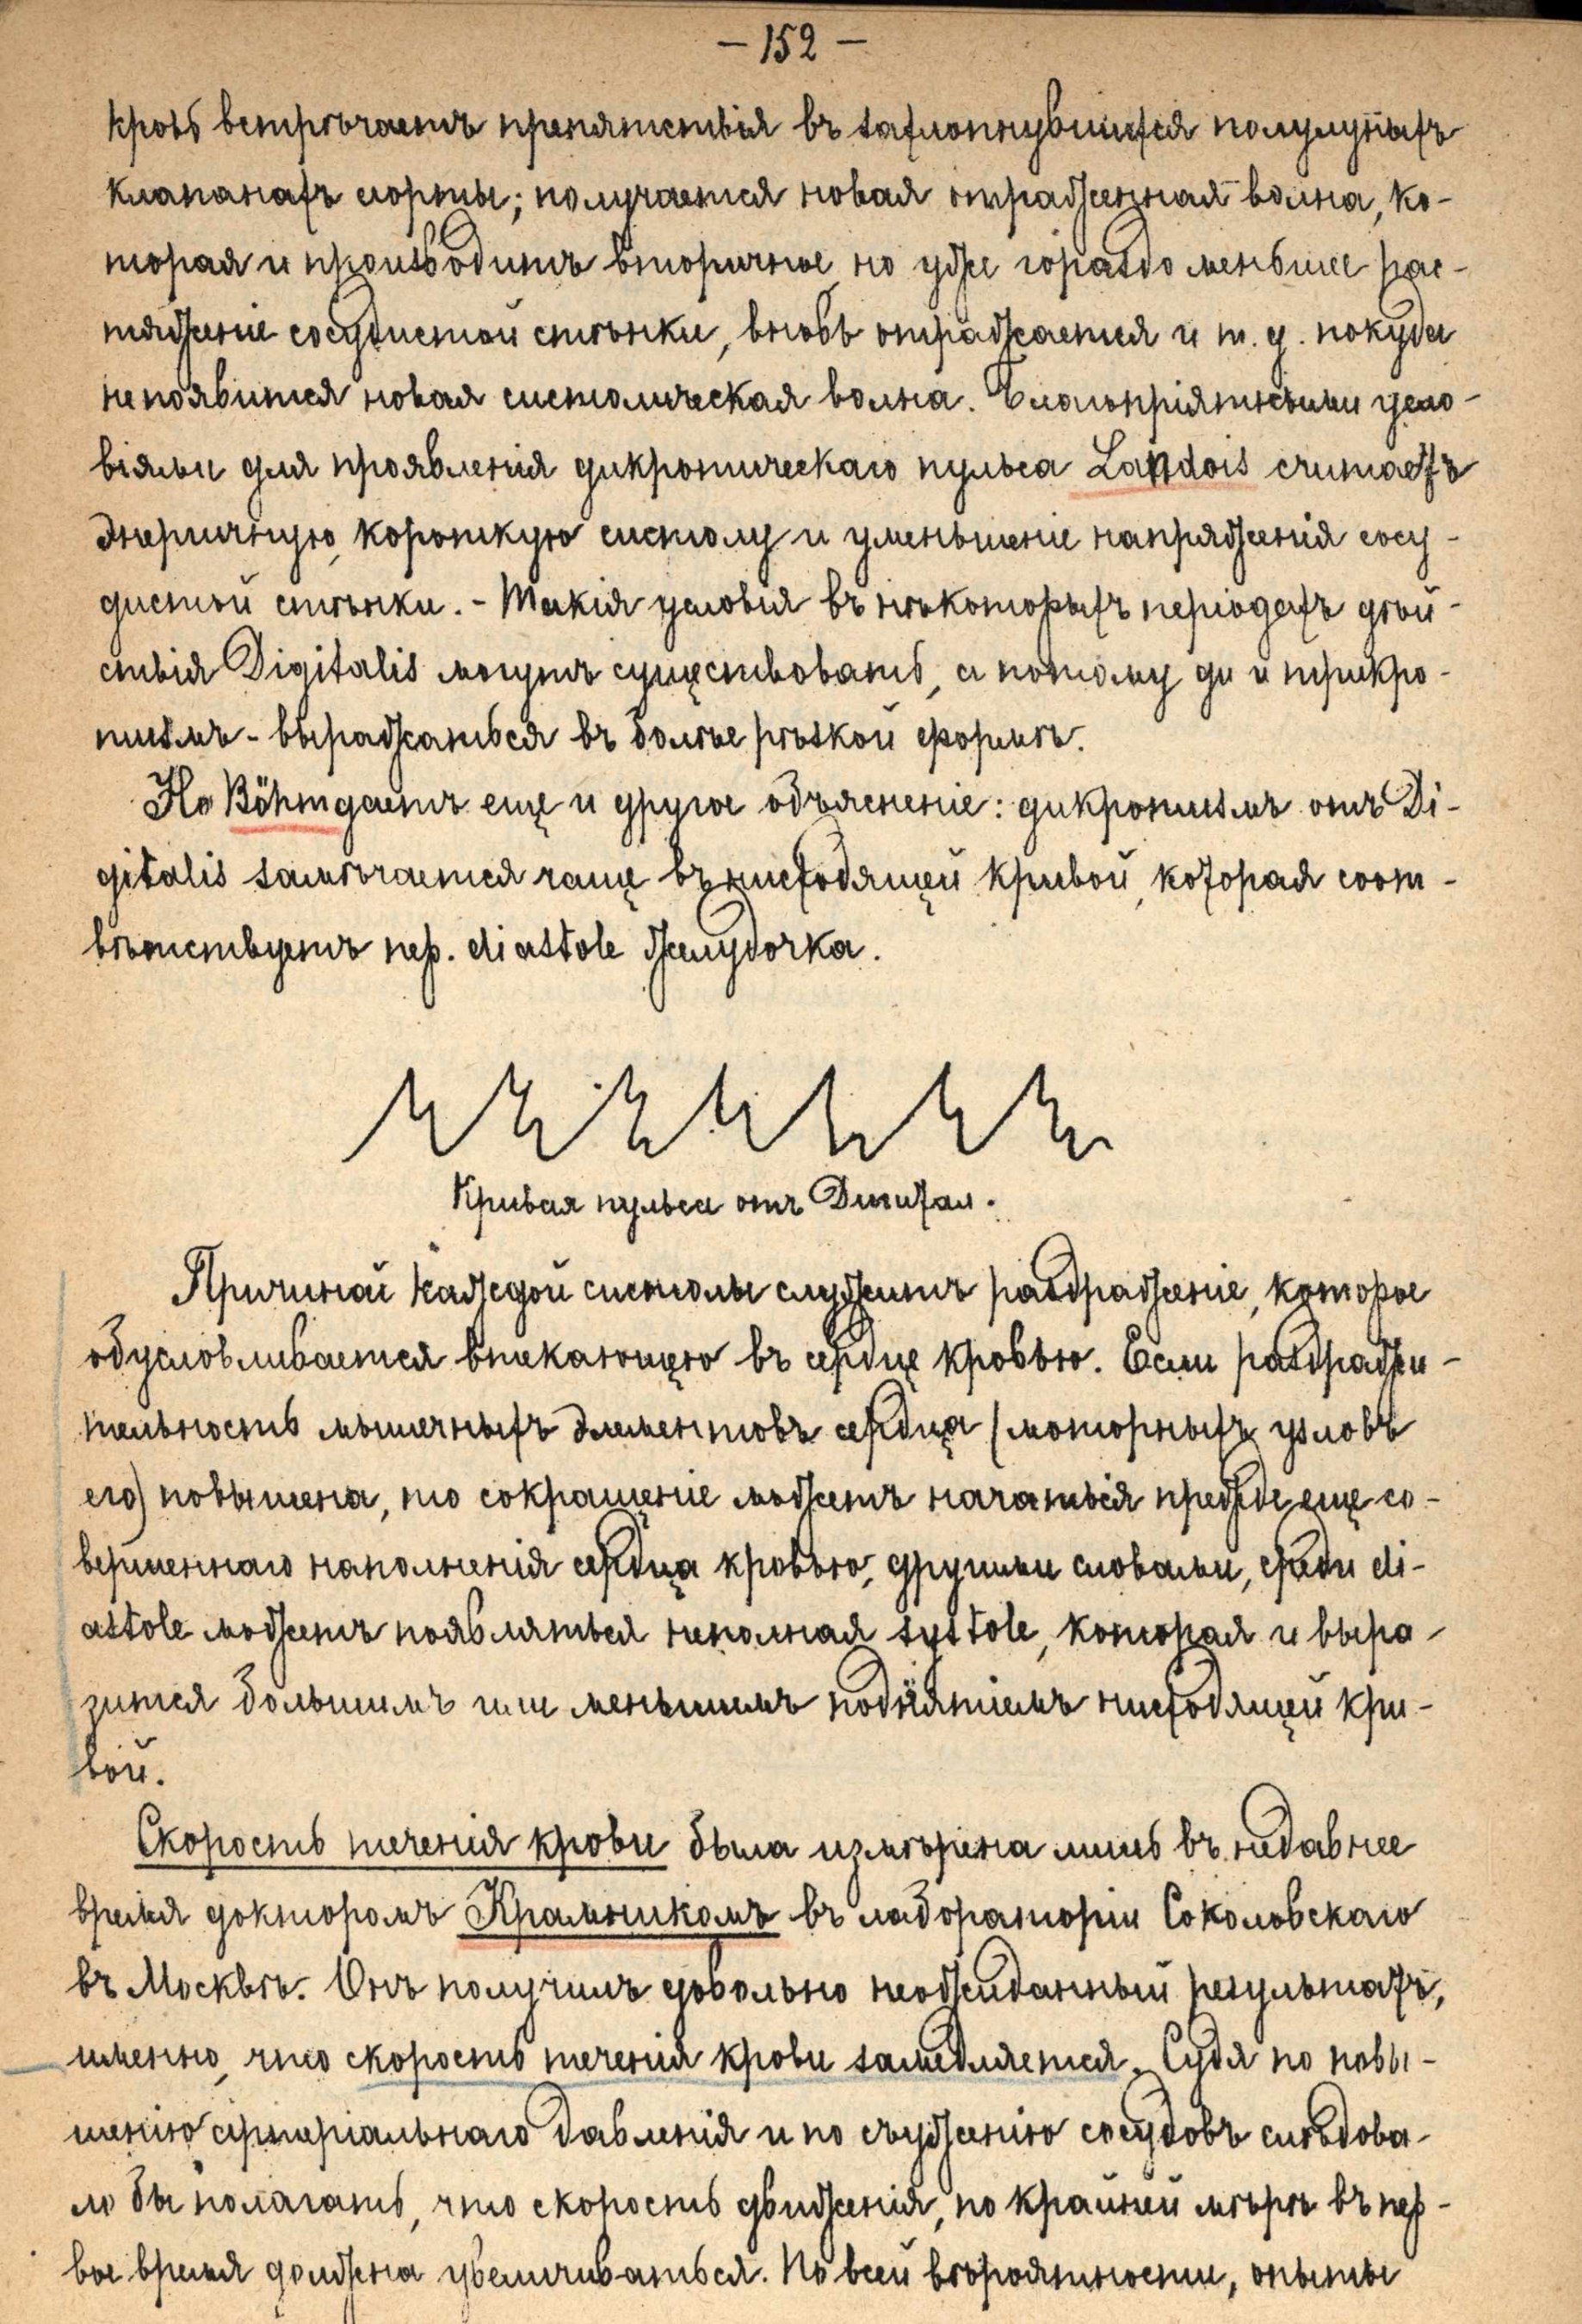 — 152 —
кровь встрѣчаетъ препятствія въ захлопнувшихся полулунныхъ
клапанахъ аорты; получается новая отраженная волна, ко-
торая и производитъ вторичное, но уже гораздо меньшее рас-
тяженіе сосудистой стѣнки, вновь отражается и т. д. покуда
непоявится новая систолическая волна. Благопріятными усло-
віями для проявленія дикротическаго пульса Landois считаетъ
энергичную, короткую систолу и уменьшеніе напряженія сосу-
дистой стѣнки. - Такія условія въ нѣкоторыхъ періодахъ дѣй-
ствія Digitalis могутъ существовать, а потому ди и трикро-
тизмъ - выражаться въ болѣе рѣзкой формѣ.
Но Böhm даетъ еще и другое объясненіе: дикротизмъ отъ Di-
gitalis замѣчается чаще въ нисходящей кривой, которая соот-
вѣтствуетъ пер. diastole желудочка.
Кривая пульса отъ Дигитал.
Причиной каждой систолы служитъ раздраженіе, которое
обусловливается втекающею въ сердце кровью. Если раздражи-
тельность мышечныхъ элементовъ сердца (моторныхъ узловъ
его) повышена, то сокращеніе можетъ начаться прежде еще со-
вершеннаго наполненія сердца кровью, другими словами, среди di-
astole можетъ появляться неполная systole, которая и выра-
зится большимъ или меньшимъ поднятіемъ нисходящей кри-
вой.
Скорость теченія крови была измѣрена лишь въ недавнее
время докторомъ Крамникомъ въ лабораторіи Соколовскаго
въ Москвѣ. Онъ получилъ довольно неожиданный результатъ,
именно, что скорость теченія крови замедляется. Судя по повы-
шенію артеріальнаго давленія и по съуженію сосудовъ слѣдова-
ло бы полагать, что скорость движенія, по крайней мѣрѣ въ пер-
вое время должна увеличиваться. По всей вѣроятности, опыты